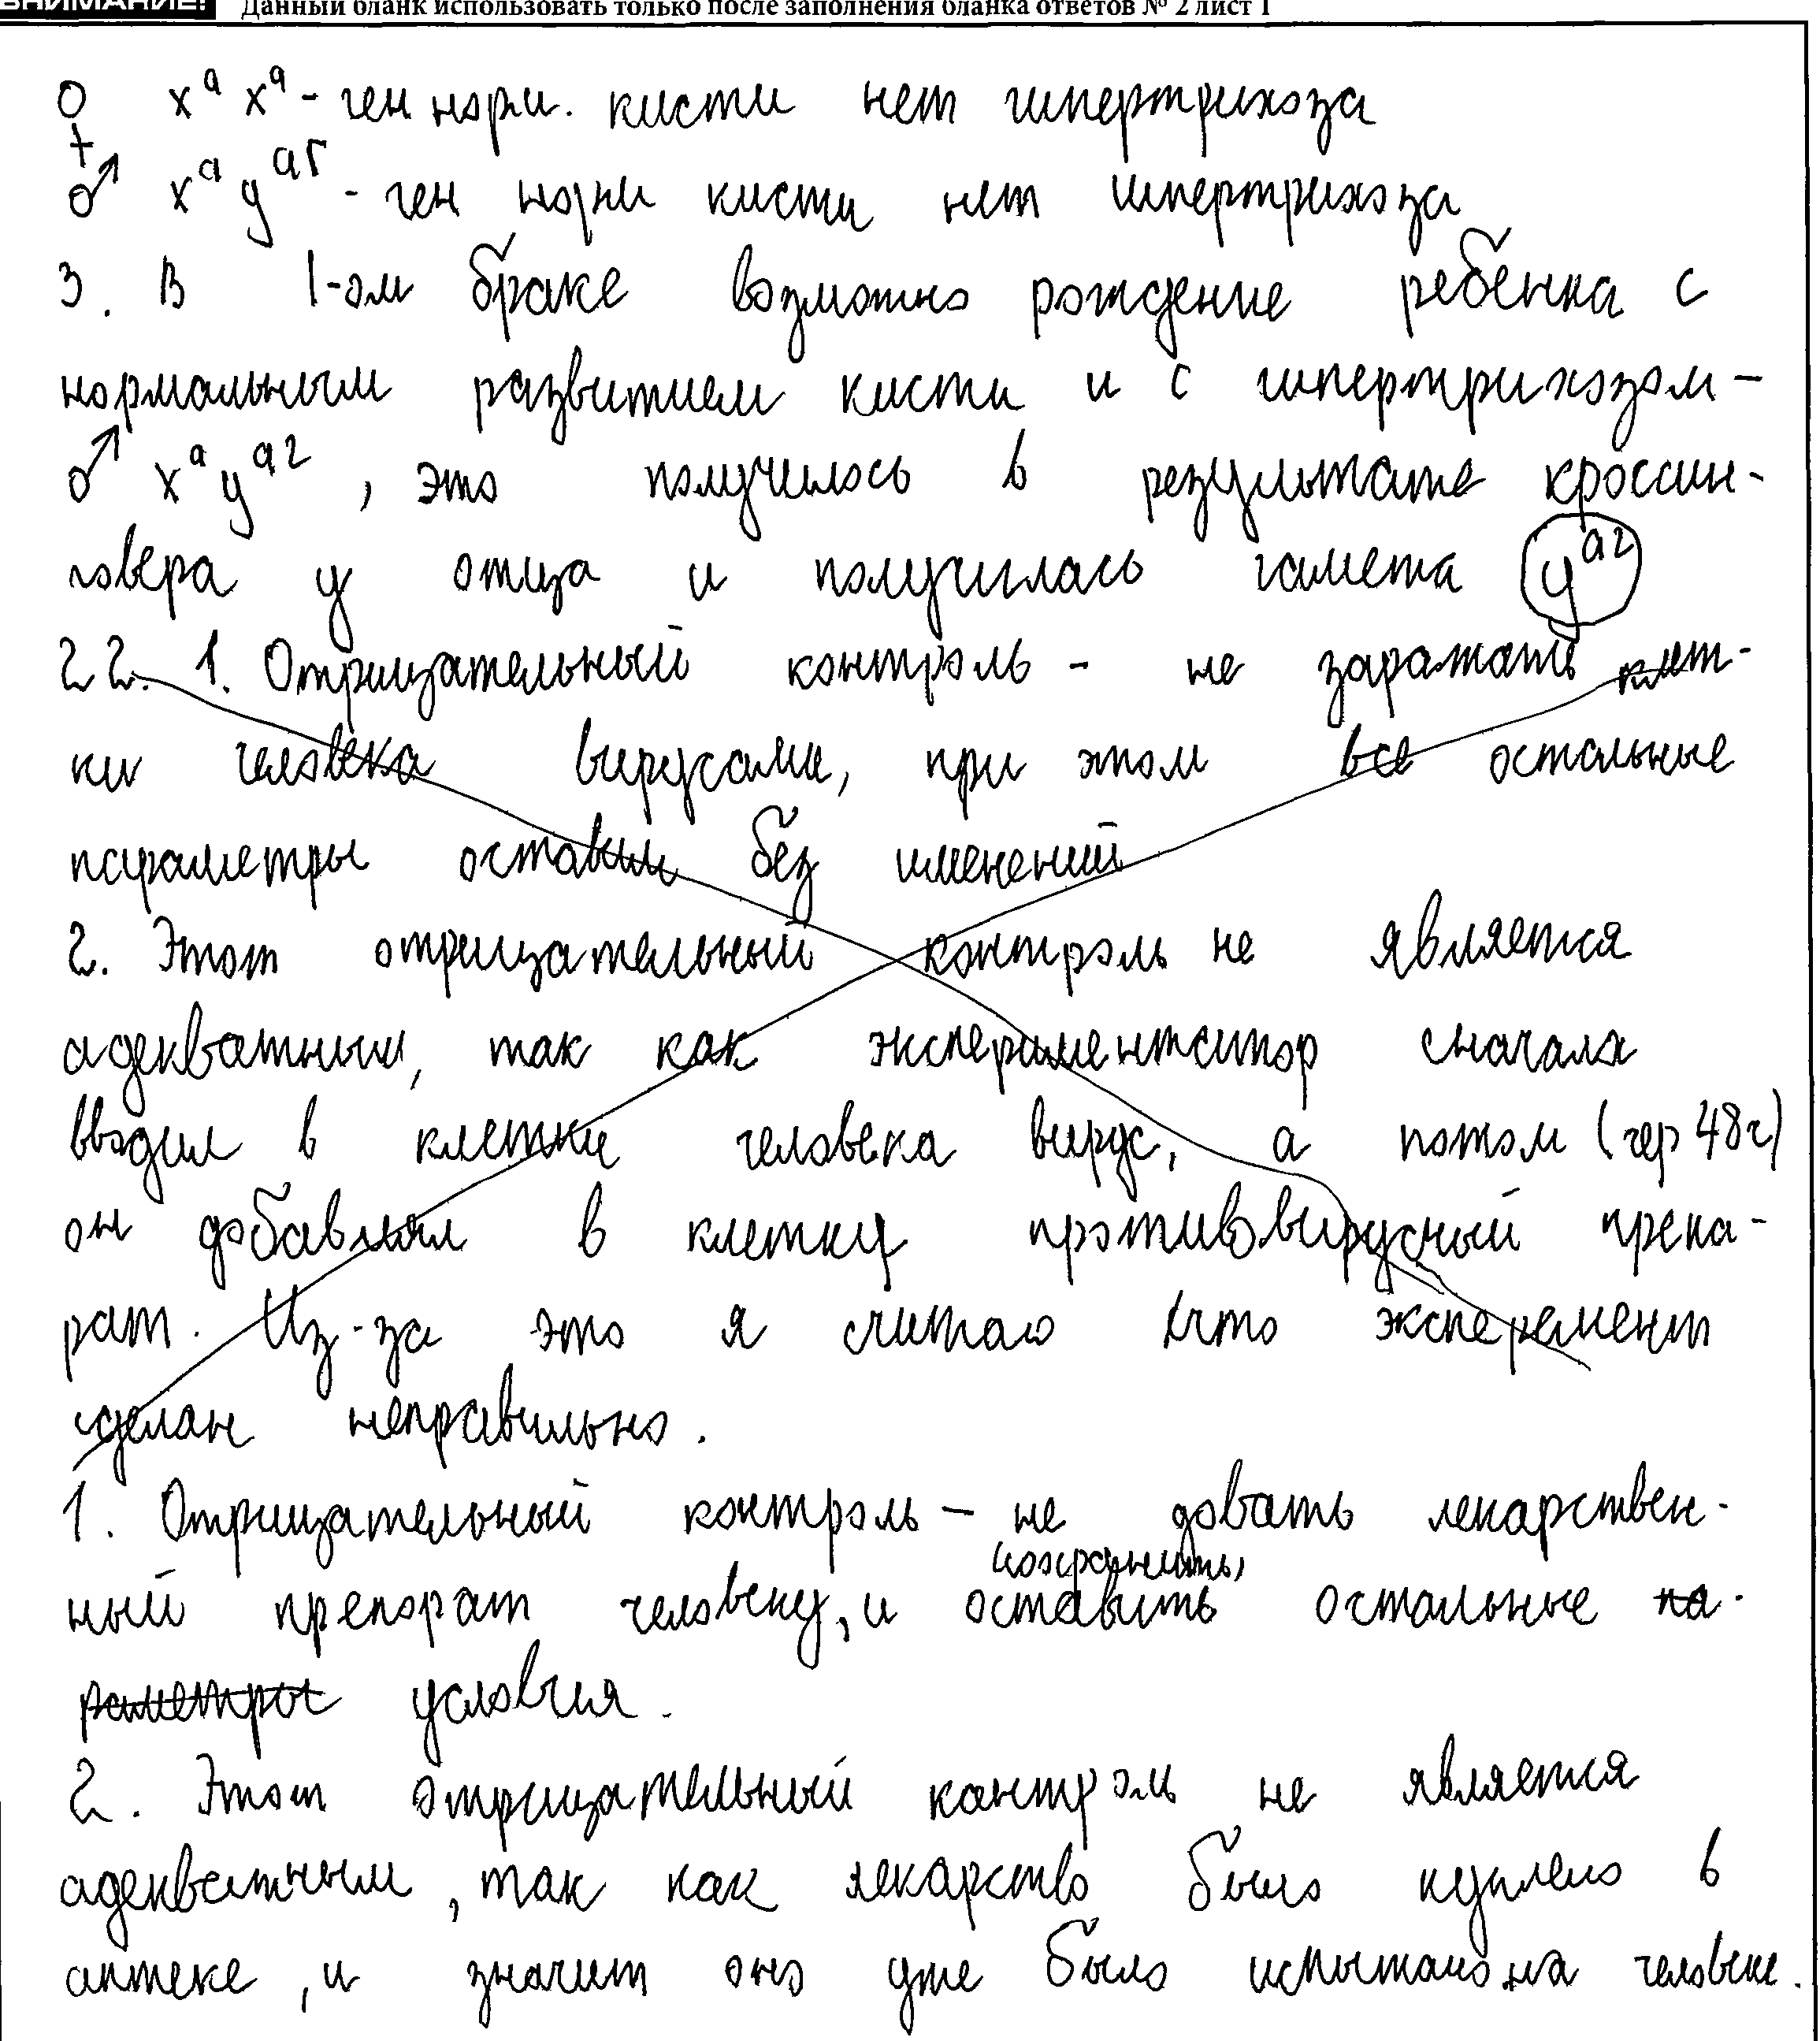 ВНИМАНИЕ! Данный бланк использовать только после заполнения бланка ответов № 2 лист 1
♀ xᵃ xᵃ - ген норм. кисти нет гипертрихоза
♂ xᵃ yᵃᴦ - ген норм кисти нет гипертрихоза
3. В 1-ом браке возможно рождение ребенка с
нормальным развитием кисти и с гипертрихозом -
♂ xᵃ yᵃᴦ, это получилось в результате кроссин-
говера у отца и получилась гамета yᵃᴦ
22. 1. Отрицательный контроль - не заражать клет-
ки человека вирусами, при этом все остальные
параметры оставим без именений
2. Этот отрицательный контроль не является
адекватным, так как экспериментатор сначала
вводил в клетки человека вирус, а потом (чер 48ч)
он добавлял в клетку противовирусный препа-
рат. Из-за это я считаю что эксперемент
сделан неправильно.
1. Отрицательный контроль - не довать лекарствен-
сохранить,
ный препорат человеку, и оставить остальные па-
раметры условия.
2. Этот отрицательный контроль не является
адекватным, так как лекарство было куплено в
аптеке, и значит оно уже было испытано на человеке.